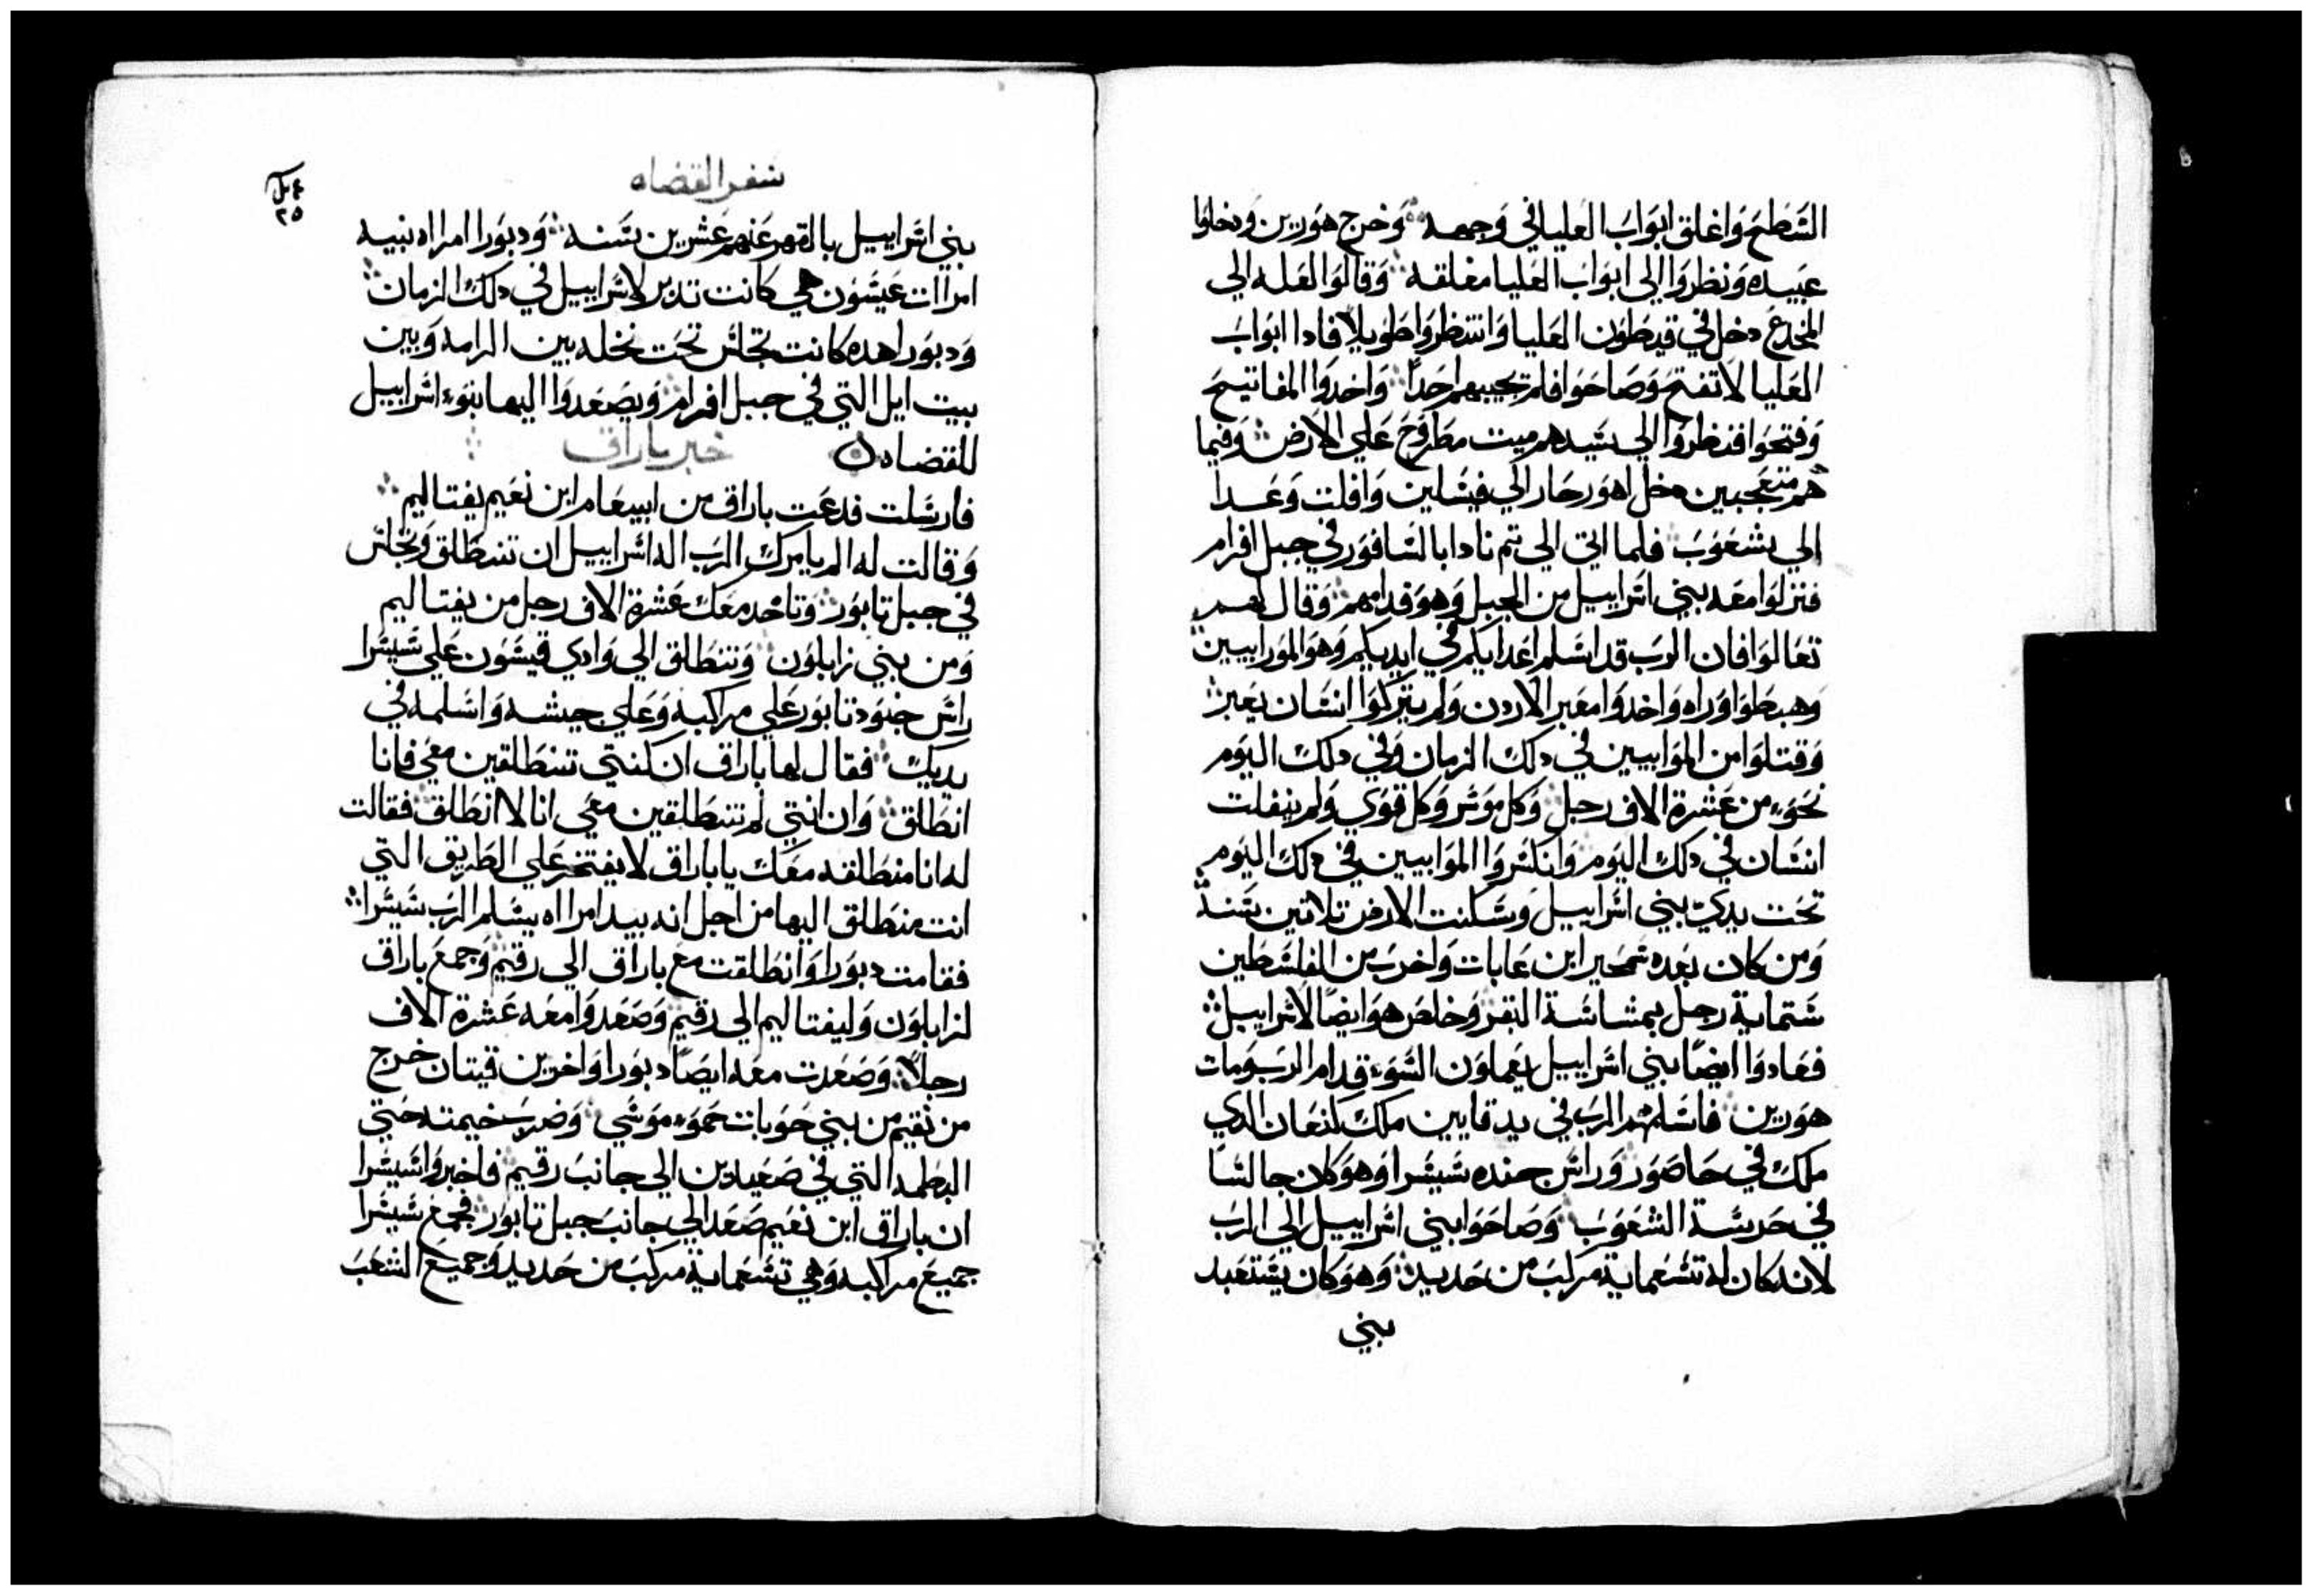 السطح واغلق ابواب العليا في وجهه وخرج هورين ودخلوا
عبيده ونظروا الي ابواب العليا مغلقه وقالوا لعله الي
المخدع دخل في قيطون العليا وانتظروا طويلا فادا ابواب
العليا لا تفتح وصاحوا فلم يجيبهم احدا واخدوا المفاتيح
وفتحوا فنظروا الي سيدهم ميت مطروح علي الارض وفيما
هم متعجبين دخل اهور حار الي فيسلين وافلت وعدا
الي يشعوب فلما اتي الي تم نادا بالسافور في جبل افرام
فنزلوا معه بني اسراييل من الجبل وهو قدامهم وقال لهم
تعالوا فان الرب قد اسلم اعدايكم في ايديكم وهو الموراييين
وهبطوا وراه واخدوا معبر الاردن ولم يتركوا انسان يعبر
وقتلوا من الموابيين في دلك الزمان وفي دلك اليوم
نحو من عشرة الاف رجل وكل موسر وكل قوي ولم ينفلت
انسان في دلك اليوم وانكسروا الموابيين في دلك اليوم
تحت يدي بني اسراييل وسكنت الارض تلاتين سنة
ومن كان بعده سمحير ابن عابات واخرب من الفلسطين
ستماية رجل بمشاسة البقر وخلص هو ايضا لاسراييل
فعادوا ايضا بني اسراييل يعملون السو قدام الرب ومات
هورين فاسلمهم الرب في يد قابين ملك كنعان الدي
ملك في حاصور وراس جنده سيسرا وهو كان جالسا
في حريسة الشعوب وصاحوا بني اسراييل الي الرب
لانه كان له تسعماية مركب من حديد وهو كان يستعبد
بني
سفر القضاه
٢٥
بني اسراييل بالقهر عنهم عشرين سنه ودبورا امراه نبيه
امراات عيسون هي كانت تدبر لاسراييل في دلك الزمان
ودبورا هده كانت تجلس تحت نخله بين الرامه وبين
بيت ايل التي في جبل افرام ويصعدوا اليها بنو اسراييل
للقضاه
خبر باراق
فارسلت فدعت باراق من ابيعام ابن نعيم يفتاليم
وقالت له الم يامرك الرب اله اسراييل ان تنطلق وتجلس
في جبل تابور وتاخد معك عشرة الاف رجل من يفتاليم
ومن بني زابلون وتنطلق الي وادي قيسون علي سيسرا
راس جنود تابور علي مراكبه وعلي جيشه واسلمه في
يديك فقال لها باراق ان كنتي تنطلقين معي فانا
انطلق وان انتي لم تنطلقين معي انا لا انطلق فقالت
له انا منطلقه معك يا باراق لا يفتخر علي الطريق التي
انت منطلق اليها من اجل انه بيد امراه يسلم الرب سيسرا
فقامت دبورا وانطلقت مع باراق الي رقيم وجمع باراق
لزابلون وليفتاليم الي رقيم وصعدوا معه عشرة الاف
رجلا وصعدت معه ايضا دبورا واخرين قيتان خرج
من نقيم من بني حوبات حمو موسي وضرب خيمته حتي
البطمه التي في صعيادين الي جانب رقيم فاخبروا سيسرا
ان باراق ابن نعيم صعد الي جانب جبل تابور فجمع سيسرا
جميع مراكبه وهي تسعماية مركب من حديد وجميع الشعب